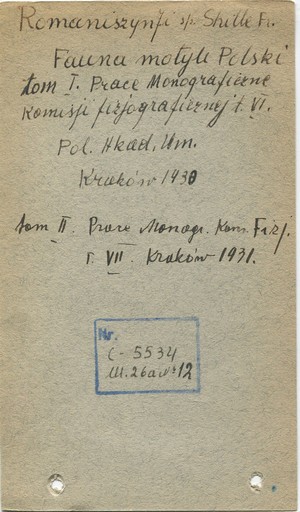 Romaniszyn J. i Shille Fr.
Fauna motyli Polski
tom I. Prace Monograficzne
Komisji fizjograficznej t. VI.
Pol. Akad. Um.
Kraków 1930
tom II. Prace Monogr. Kom. Fizj.
T. VII. Kraków 1931.
Nr.
C-5534
12